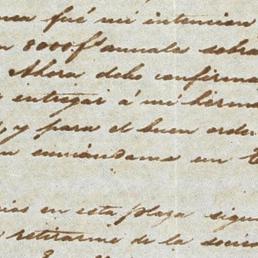 fué mi intencion
8000f anuales sobra
Ahora debo confirma
entregar á mi herm
y para el buen orde
enviándome un
en esta plaza sigu
retirarme de la socie